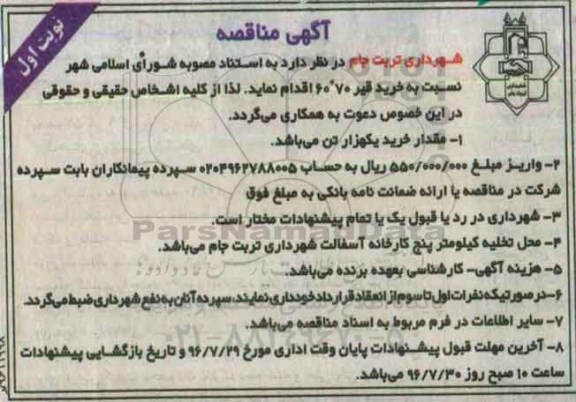 آگهی مناقصه
نوبت اول
شهرداری تربت جام در نظر دارد به استناد مصوبه شورای اسلامی شهر
نسبت به خرید قیر ۷۰*۶۰ اقدام نماید. لذا از کلیه اشخاص حقیقی و حقوقی
در این خصوص دعوت به همکاری می‌گردد.
۱- مقدار خرید یکهزار تن می‌باشد.
۲- واریز مبلغ ۵۵۰/۰۰۰/۰۰۰ ریال به حساب ۰۲۰۴۹۶۲۷۸۸۰۰۵ سپرده پیمانکاران بابت سپرده
شرکت در مناقصه یا ارائه ضمانت نامه بانکی به مبلغ فوق
۳- شهرداری در رد یا قبول یک یا تمام پیشنهادات مختار است.
ParsNamadData
۴- محل تخلیه کیلومتر پنج کارخانه آسفالت شهرداری تربت جام می‌باشد.
۵- هزینه آگهی- کارشناسی بعهده برنده می‌باشد.
۶- در صورتیکه نفرات اول تا سوم از انعقاد قرارداد خودداری نمایند، سپرده آنان به نفع شهرداری ضبط می‌گردد.
۷- سایر اطلاعات در فرم مربوط به اسناد مناقصه می‌باشد.
۸- آخرین مهلت قبول پیشنهادات پایان وقت اداری مورخ ۹۶/۷/۲۹ و تاریخ بازگشایی پیشنهادات
ساعت ۱۰ صبح روز ۹۶/۷/۳۰ می‌باشد.